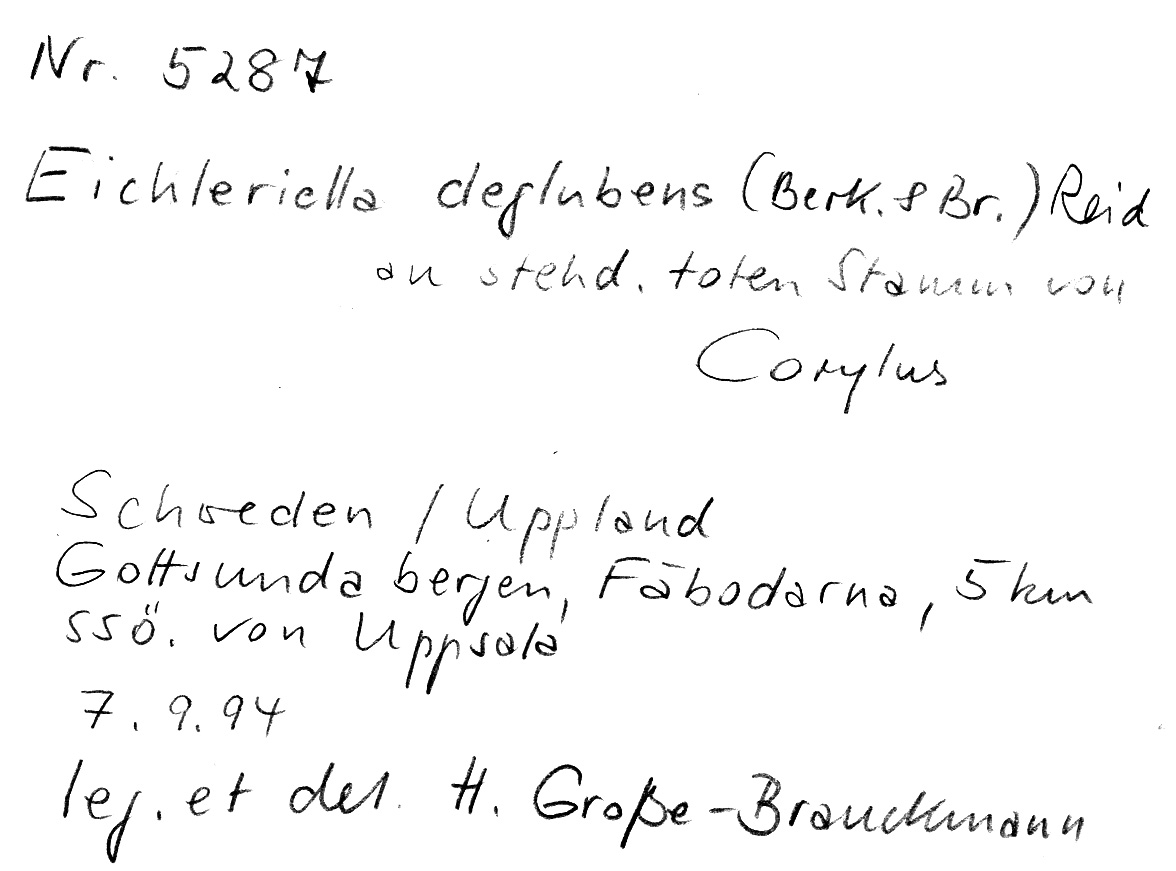 Nr. 5287
Eichleriella deglubens (Berk. & Br.) Reid
an stehd. toten Stamm von
Corylus
Schweden / Uppland
Gottsunda bergen, Fäbodarna, 5 km
ssö. von Uppsala
7. 9. 94
leg. et det. H. Große-Brauckmann